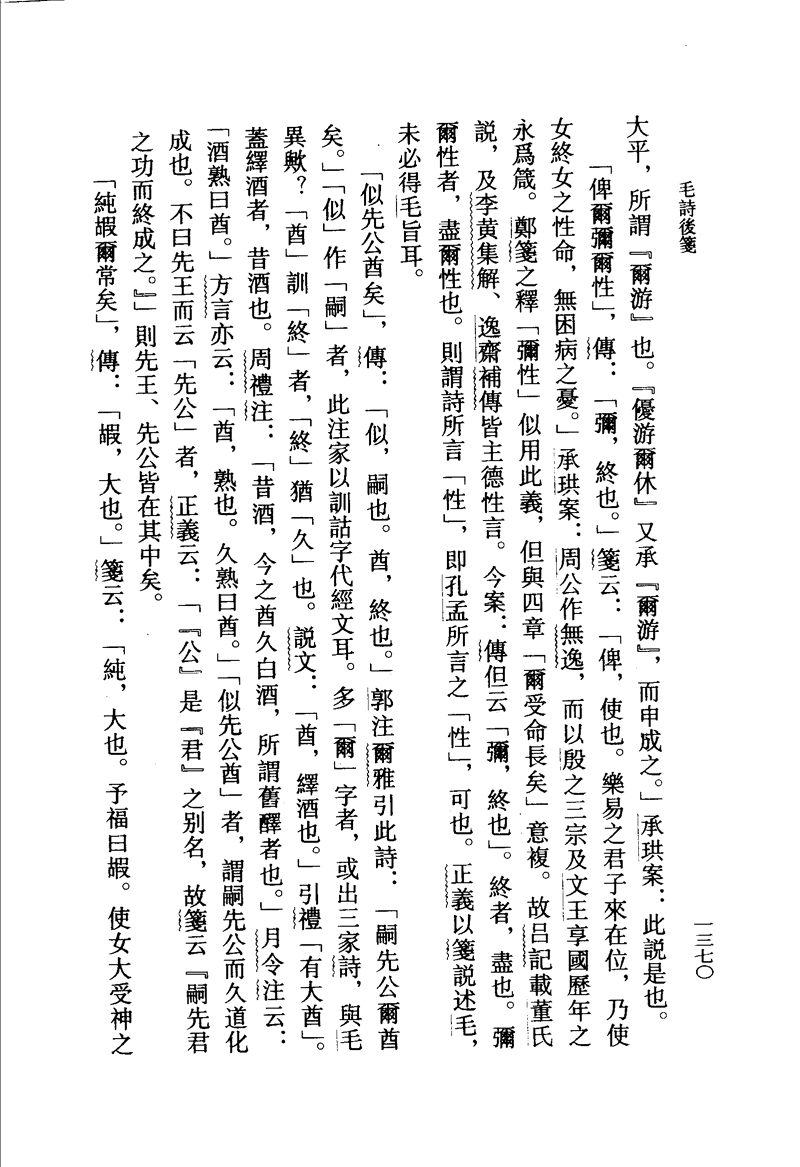 毛詩後箋
一三七〇
大平，所謂『爾游』也。『優游爾休』又承『爾游』，而申成之。」承珙案：此説是也。
「俾爾彌爾性」，傳：「彌，終也。」箋云：「俾，使也。樂易之君子來在位，乃使
女終女之性命，無困病之憂。」承珙案：周公作無逸，而以殷之三宗及文王享國歷年之
永爲箴。鄭箋之釋「彌性」似用此義，但與四章「爾受命長矣」意複。故吕記載董氏
説，及李黄集解、逸齋補傳皆主德性言。今案：傳但云「彌，終也」。終者，盡也。彌
爾性者，盡爾性也。則謂詩所言「性」，即孔孟所言之「性」，可也。正義以箋説述毛，
未必得毛旨耳。
「似先公酋矣」，傳：「似，嗣也。酋，終也。」郭注爾雅引此詩：「嗣先公爾酋
矣。」「似」作「嗣」者，此注家以訓詁字代經文耳。多「爾」字者，或出三家詩，與毛
異歟？「酋」訓「終」者，「終」猶「久」也。説文：「酋，繹酒也。」引禮「有大酋」。
蓋繹酒者，昔酒也。周禮注：「昔酒，今之酋久白酒，所謂舊醳者也。」月令注云：
「酒熟曰酋。」方言亦云：「酋，熟也。久熟曰酋。」「似先公酋」者，謂嗣先公而久道化
成也。不曰先王而云「先公」者，正義云：「『公』是『君』之别名，故箋云『嗣先君
之功而終成之。』」則先王、先公皆在其中矣。
「純嘏爾常矣」，傳：「嘏，大也。」箋云：「純，大也。予福曰嘏。使女大受神之